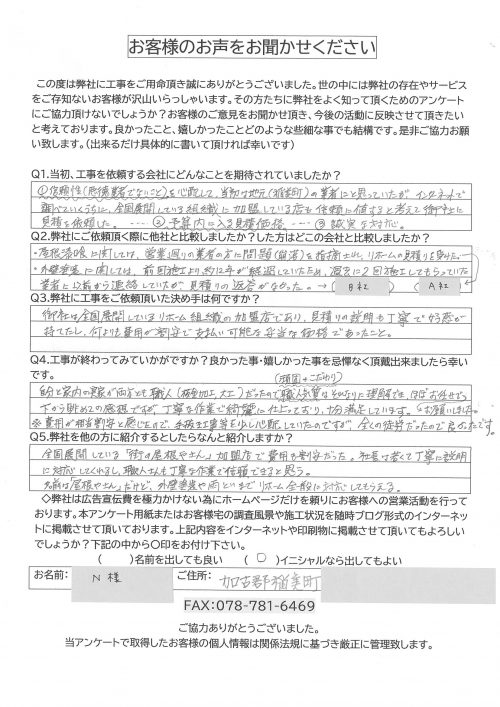 お客様のお声をお聞かせください
この度は弊社に工事をご用命頂き誠にありがとうございました。世の中には弊社の存在やサービス
をご存知ないお客様が沢山いらっしゃいます。その方たちに弊社をよく知って頂くためのアンケート
にご協力頂けないでしょうか？お客様のご意見をお聞かせ頂き、今後の活動に反映させて頂きたい
と考えております。良かったこと、嬉しかったことどのような些細な事でも結構です。是非ご協力お願
い致します。（出来るだけ具体的に書いて頂ければ幸いです）
Q1.当初、工事を依頼する会社にどんなことを期待されていましたか？
①信頼性(悪徳業者でないこと)を心配して、当初は地元(稲美町)の業者にと思っていたが、インターネットで
調べていくうちに、全国展開している組織に加盟している店も信頼に値すると考えて御社に
見積を依頼した。 ②予算内に入る見積価格 ③誠実な対応
Q2.弊社にご依頼頂く際に他社と比較しましたか？した方はどこの会社と比較しましたか？
・屋根漆喰に関しては、営業廻りの業者の方に問題(崩落)を指摘され、リホームの見積りを
・外壁塗装に関しては、前回施工より約12年が経過していたため、過去に2回施工してもらっていた
業者に以前から連絡していたが、見積りの返答がなかった。→ ( B社 ) ( A社 )
Q3.弊社に工事をご依頼頂いた決め手は何ですか？
御社は全国展開しているリホーム組織の加盟店であり、見積りの説明も丁寧で好感が
持てたし、何よりも費用が割安で支払い可能な妥当な価格であったこと。
Q4.工事が終わってみていかがですか？良かった事・嬉しかった事を忌憚なく頂戴出来ましたら幸い
です。
(頑固・こだわり)
自分と家内の実家が両方とも職人(板金加工、大工)だったので職人気質はそれなりに理解でき、ほぼお任せで
お願いしました。
下から眺めての屋根ですが、丁寧な作業で綺麗に仕上っており、大満足しています。
※費用が相当割安と感じたので、手抜工事等を少し心配していたのですが、全くの徒労だったので良かったです。
Q5.弊社を他の方に紹介するとしたらなんと紹介しますか？
全国展開している「街の屋根やさん」加盟店で費用も割安だった。社長は若くて丁寧に説明
に対応してくれるし、職人さんも丁寧な作業で信頼できると思う。
名前は「屋根やさん」だけど、外壁塗装や雨といまでリホーム全般に対応してもらえる。
◇弊社は広告宣伝費を極力かけない為にホームページだけを頼りにお客様への営業活動を行って
おります。本アンケート用紙またはお客様宅の調査風景や施工状況を随時ブログ形式のインターネッ
トに掲載させて頂いております。上記内容をインターネットや印刷物に掲載させて頂いてもよろしい
でしょうか？下記の中から〇印をお付け下さい。
(　　)名前を出しても良い　( 〇 )イニシャルなら出してもよい
お名前： N 様　ご住所： 加古郡稲美町
FAX:078-781-6469
ご協力ありがとうございました。
当アンケートで取得したお客様の個人情報は関係法規に基づき厳正に管理致します。